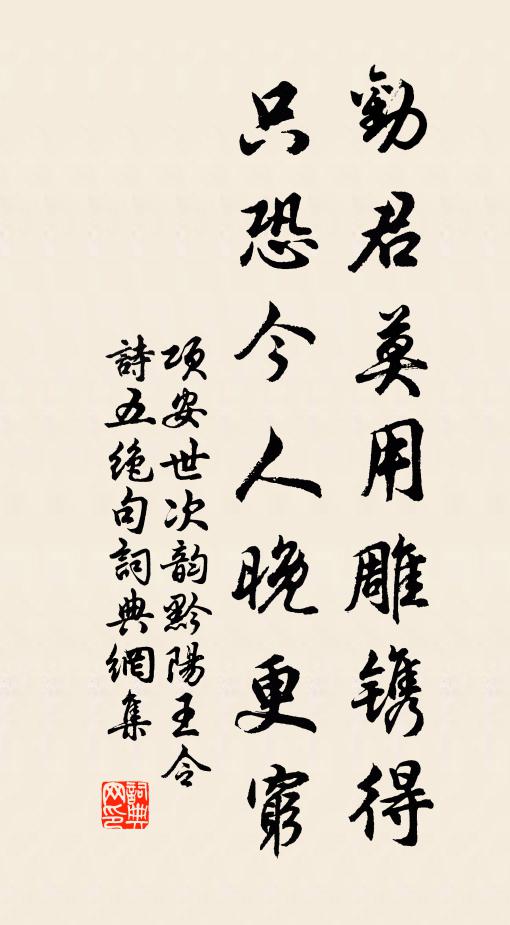 勸君莫用雕镌得
只恐今人晚更窮
項安世次韵黔陽王令
詩五绝句詞典網集
詞典网印